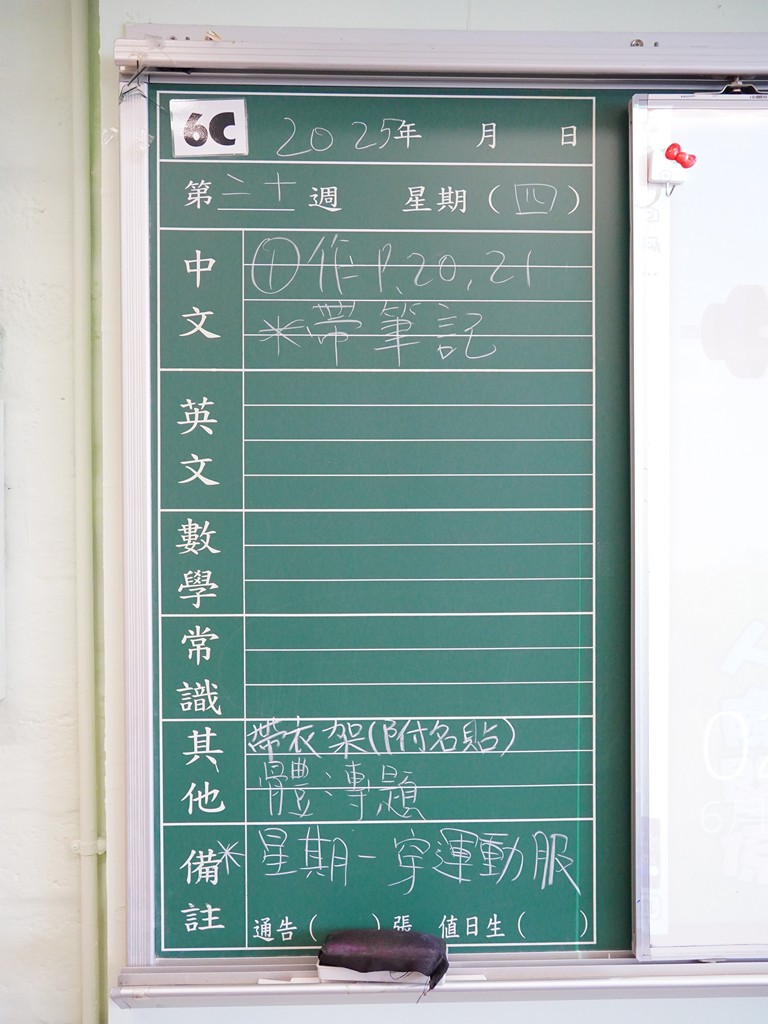 6C 2025年 月 日
第三十週 星期（四）
中文
①作:P.20,21
*帶筆記
英文
數學
常識
其他
帶衣架(附名貼)
體:專題
備註
*星期一穿運動服
通告（ ）張 值日生（ ）